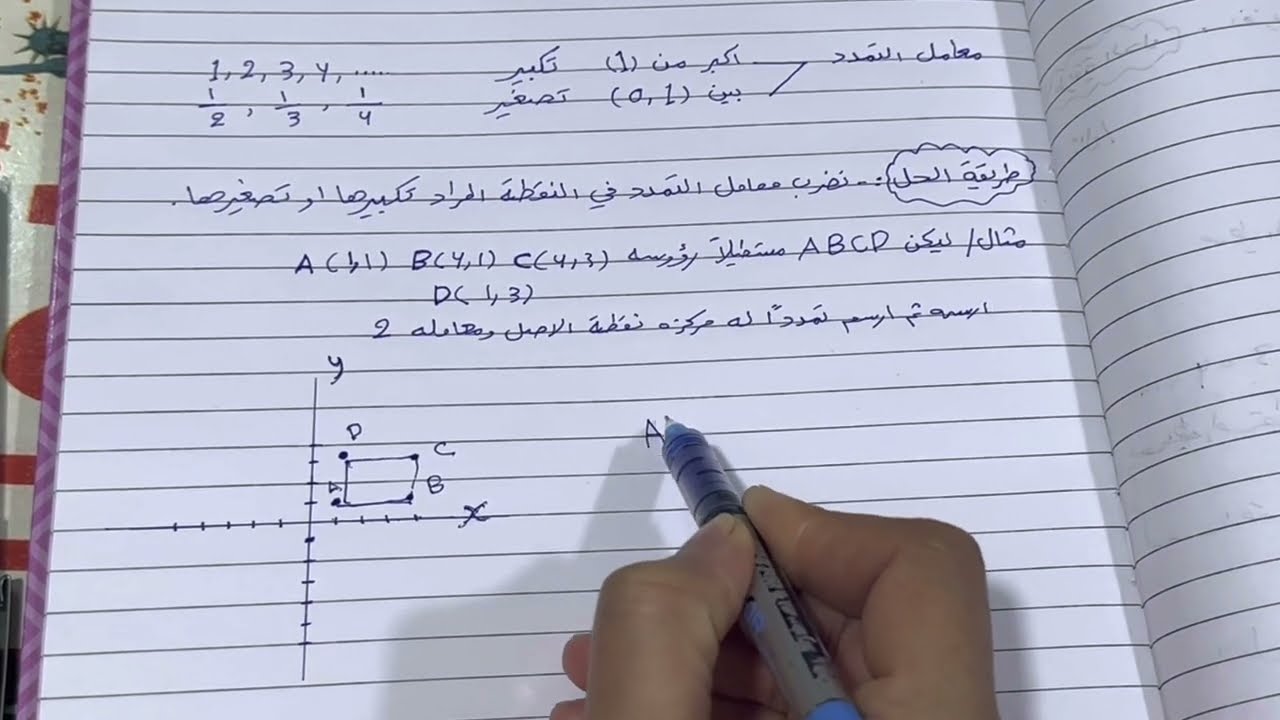 معامل التمدد أكبر من (1) تكبير 1, 2, 3, 4, .....
بين (0,1) تصغير 1/2 , 1/3 , 1/4
طريقة الحل :- نضرب معامل التمدد في النقطة المراد تكبيرها او تصغيرها .
مثال/ ليكن ABCD مستطيلاً رؤوسه A(1,1) B(4,1) C(4,3)
D(1,3)
ارسمه ثم ارسم تمدداً له مركزه نقطة الاصل ومعامله 2
y
D C
A B
x
A